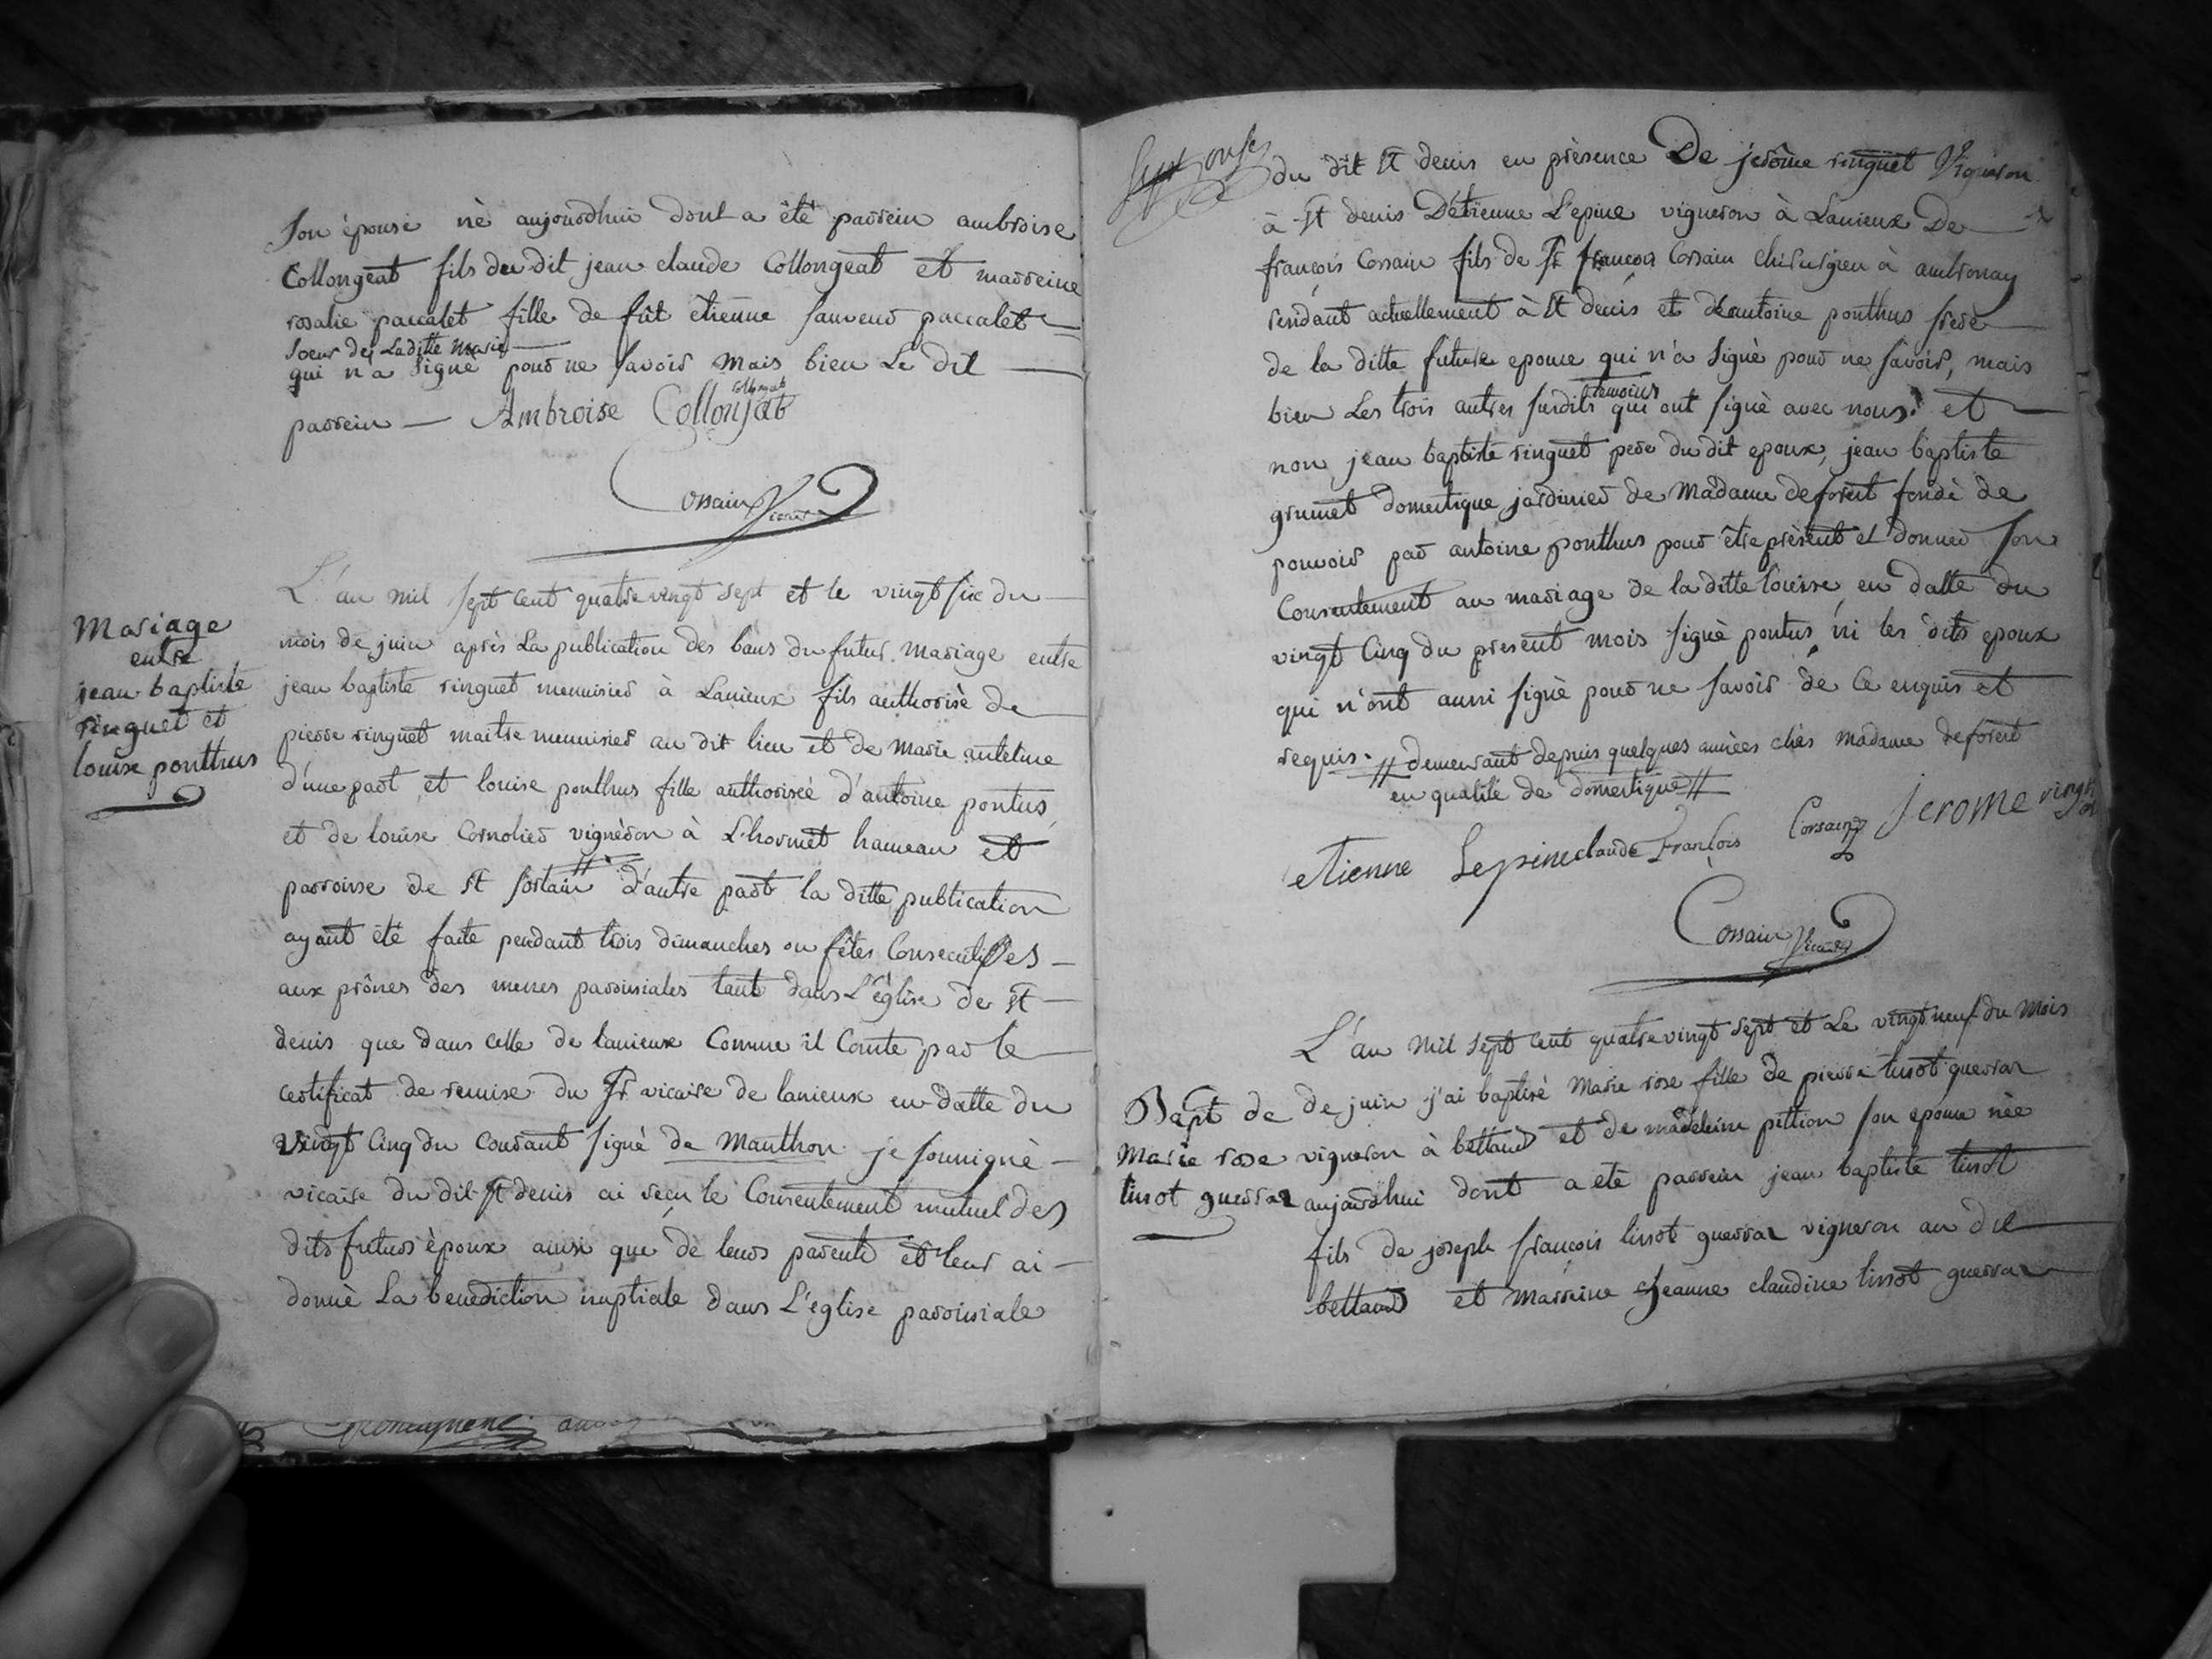 son épouse né aujourdhui dont a été parrein ambroise
Collongeat fils du dit jean claude Collongeat et marreine
rosalie paccalet fille de fût etienne sauveur paccalet
soeur de Laditte marie
qui n'a signé pour ne savoir mais bien Le dit
parrein Ambroise Collonjat
Cossain Vicaire
Mariage
entre
jean baptiste
ringuet et
louise ponthus
L'an mil sept cent quatre vingt sept et le vingt six du
mois de juin après La publication des bans du futur mariage entre
jean baptiste ringuet menuisier à Lanieux fils authorisé de
pierre ringuet maitre menuisier au dit lieu et de marie antelme
d'une part et louise ponthus fille authorisée d'antoine pontus
et de louise Cornolier vigneron à L'hormet hameau et
parroisse de st sortain // d'autre part la ditte publication
ayant été faite pendant trois dimanches ou fêtes Consecutives
aux prônes des messes paroissiales tant dans L'église de st
denis que dans celle de lanieux Comme il Conste par le
certificat de remise du Sr vicaire de lanieux en datte du
vingt cinq du courant signé de Manthon je soussigné
vicaire du dit st denis ai reçu le Consentement mutuel des
dits futurs époux ainsi que de leurs parents et leur ai
donné La benediction nuptiale dans L'église paroissiale
du dit st denis en présence De jerôme ringuet Vigneron
à st denis D'étienne L'epine vigneron à Lanieux De
françois Cossain fils de Sr françois Cossain chirurgien à ambronay
residant actuellement à st denis et d'antoine ponthus frere
de la ditte future epouse qui n'a signé pour ne savoir, mais
bien Les trois autres susdits temoins qui ont signé avec nous et
non jean baptiste ringuet pere du dit epoux, jean baptiste
grumet domestique jardinier de Madame deforest fondé de
pouvoir par antoine ponthus pour être présent et donner son
Consentement au mariage de la ditte louise en datte du
vingt Cinq du present mois signé pontus ni les dits epoux
qui n'ont aussi signé pour ne savoir de ce enquis et
requis. // demeurant depuis quelques années chés madame deforest
en qualité de domestique //
etienne Lepine claude françois Cossain Jerome ringuet
Cossain Vicaire
Bapt de
Marie rose
tissot guerraz
L'an mil sept cent quatre vingt sept et Le vingt neuf du mois
de juin j'ai baptisé Marie rose fille de pierre tissot guerraz
vigneron à bettand et de madeleine pittion son epouse née
aujourdhui dont a eté parrein jean baptiste tissot
fils de joseph françois tissot guerraz vigneron au dit
bettand et marreine jeanne claudine tissot guerraz